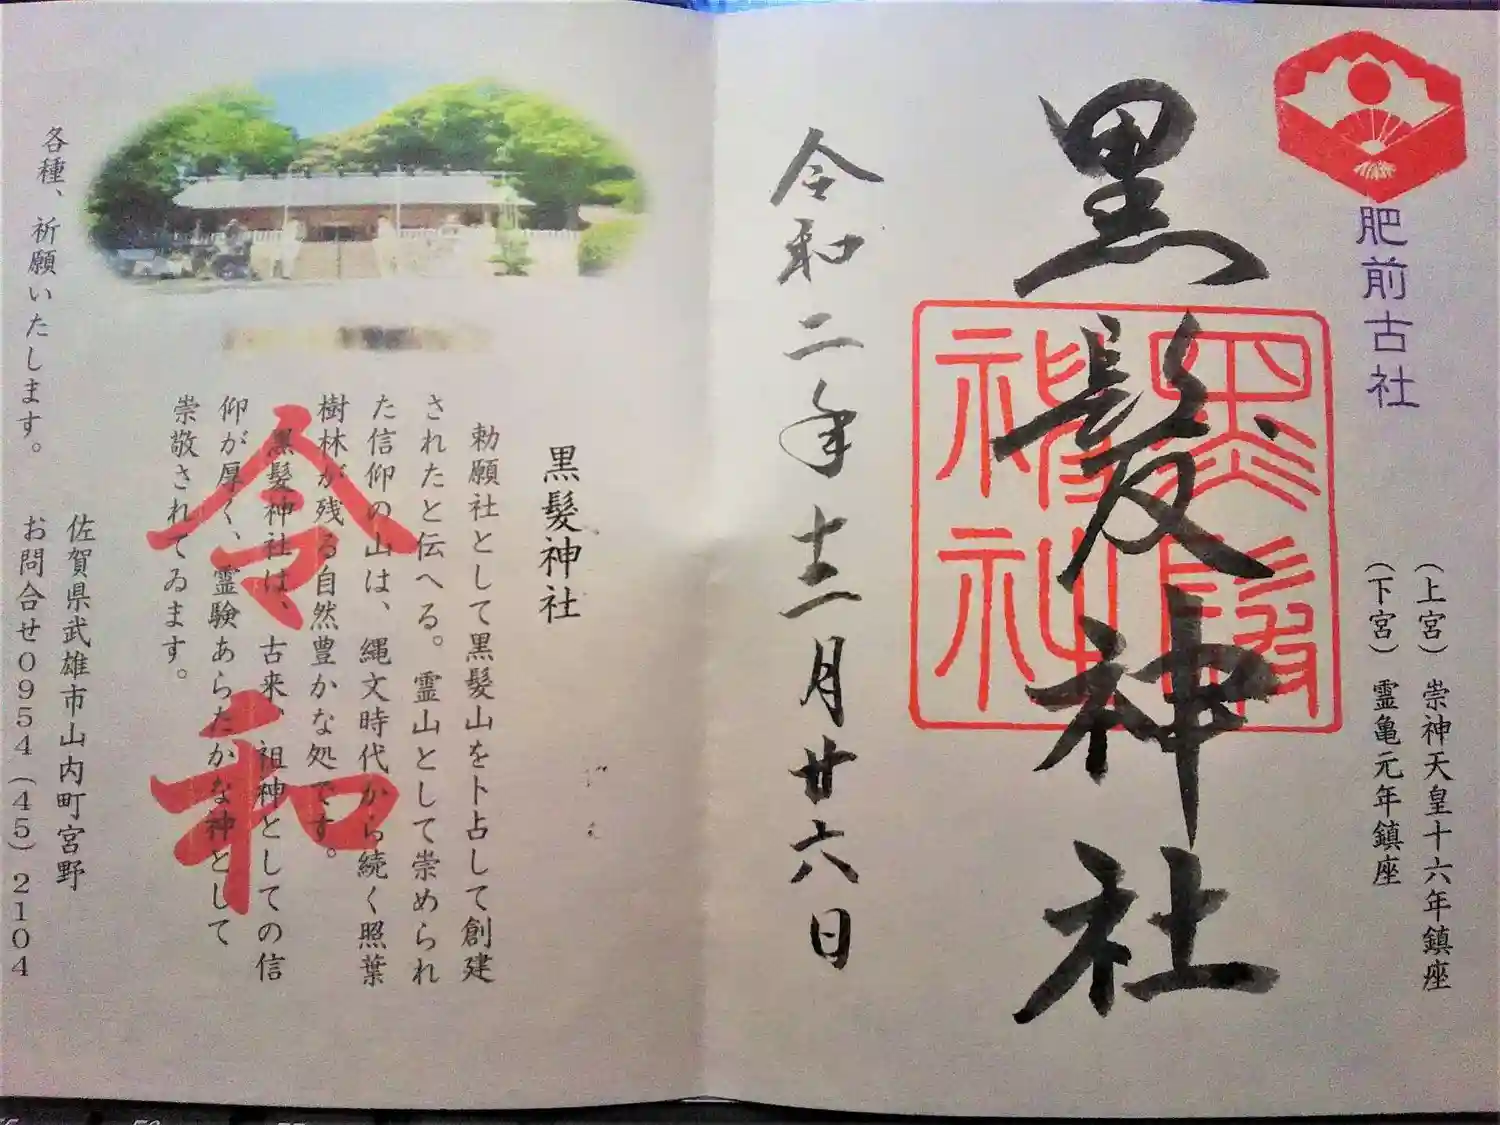 肥前古社
(上宮) 崇神天皇十六年鎮座
(下宮) 霊亀元年鎮座
黒髪神社
黒髪神社
令和二年十二月廿六日
黒髪神社
勅願社として黒髪山を卜占して創建
されたと伝へる。霊山として崇められ
た信仰の山は、縄文時代から続く照葉
樹林が残る自然豊かな処です。
黒髪神社は、古来、祖神としての信
仰が厚く、霊験あらたかな神として
崇敬されてゐます。
令和
佐賀県武雄市山内町宮野
お問合せ0954(45)2104
各種、祈願いたします。